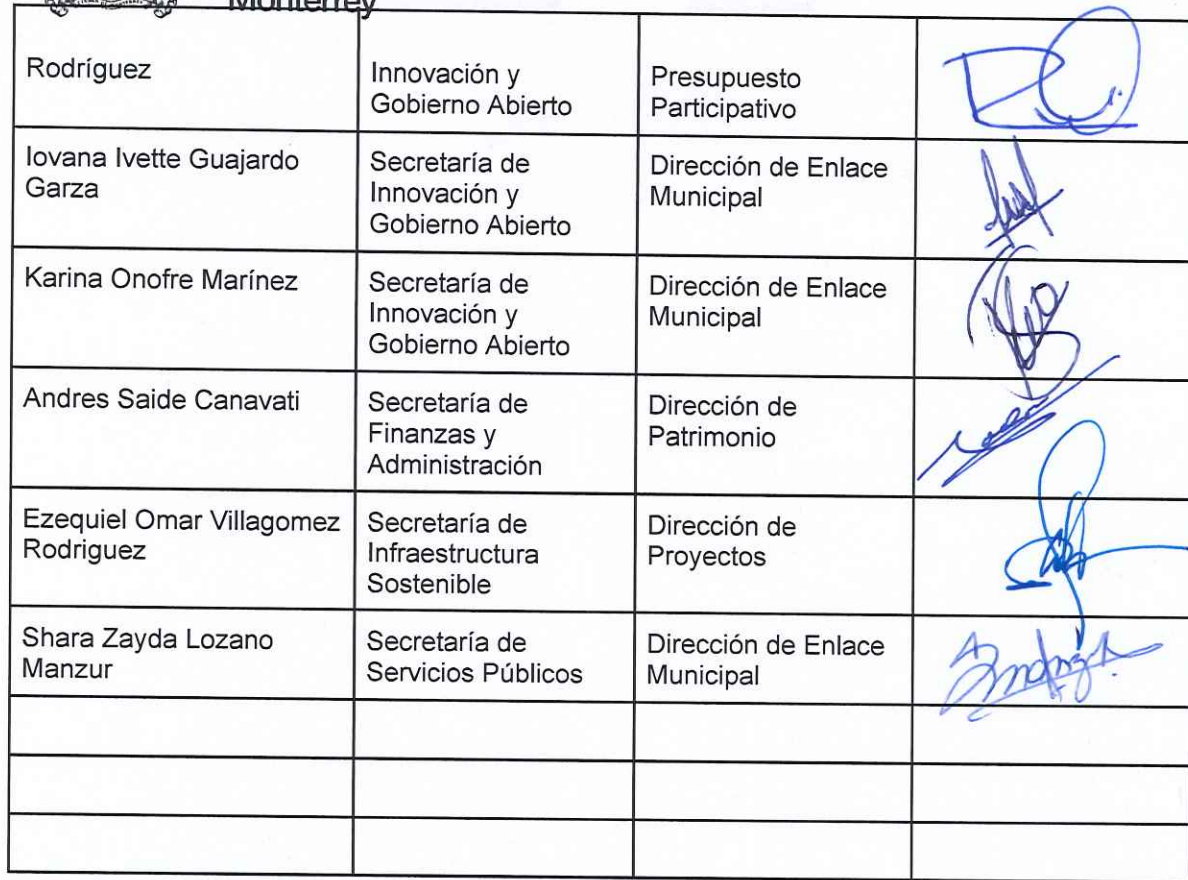 Monterrey
Rodríguez
Innovación y
Gobierno Abierto
Presupuesto
Participativo
Iovana Ivette Guajardo
Garza
Secretaría de
Innovación y
Gobierno Abierto
Dirección de Enlace
Municipal
Karina Onofre Marínez
Secretaría de
Innovación y
Gobierno Abierto
Dirección de Enlace
Municipal
Andres Saide Canavati
Secretaría de
Finanzas y
Administración
Dirección de
Patrimonio
Ezequiel Omar Villagomez
Rodriguez
Secretaría de
Infraestructura
Sostenible
Dirección de
Proyectos
Shara Zayda Lozano
Manzur
Secretaría de
Servicios Públicos
Dirección de Enlace
Municipal